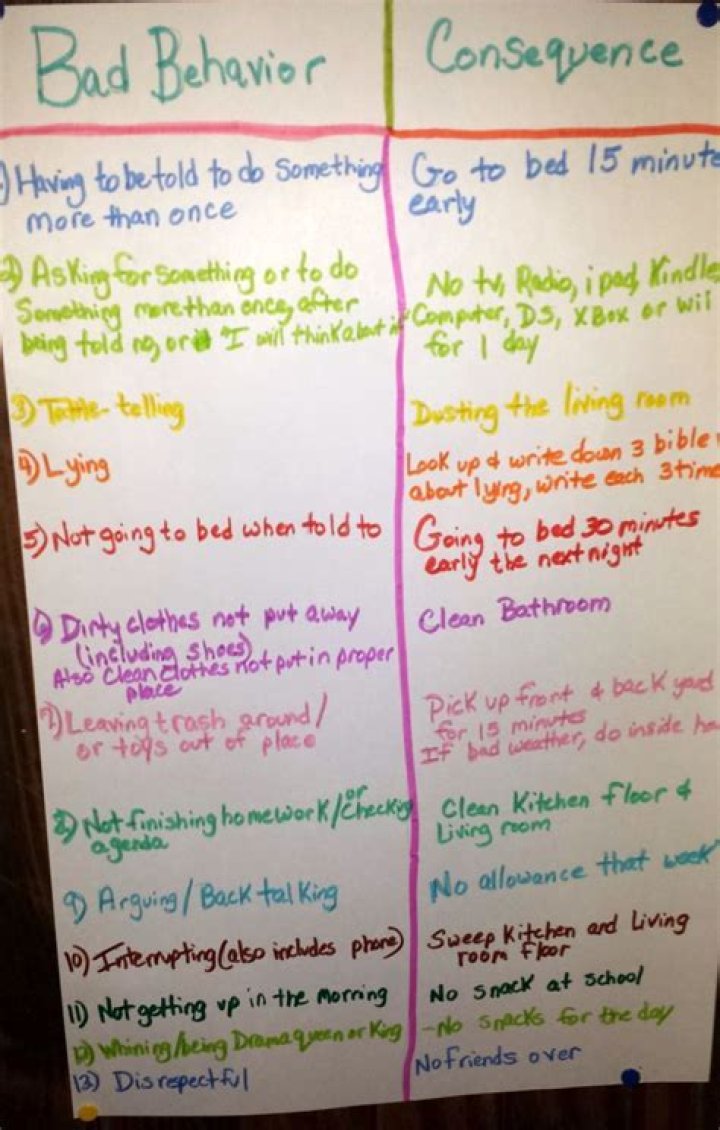 Bad Behavior
Consequence
1) Having to be told to do something
more than once
Go to bed 15 minute
early
2) Asking for something or to do
Something more than once, after
being told no, or "I will think about it"
No tv, Radio, ipad, Kindle
Computer, DS, XBox or Wii
for 1 day
3) Tattle-telling
Dusting the living room
4) Lying
Look up & write down 3 bible
about lying, write each 3 time
5) Not going to bed when told to
Going to bed 30 minutes
early the next night
6) Dirty clothes not put away
(including shoes)
Also Clean Clothes not put in proper
place
Clean Bathroom
7) Leaving trash around/
or toys out of place
Pick up front & back yard
for 15 minutes
If bad weather, do inside ho
8) Not finishing homework/or Checking
agenda
Clean Kitchen floor &
Living room
9) Arguing/Back talking
No allowance that week
10) Interrupting (also includes phone)
Sweep Kitchen and Living
room floor
11) Not getting up in the morning
No snack at school
12) Whining/being Drama queen or King
-No snacks for the day
13) Disrespectful
No friends over